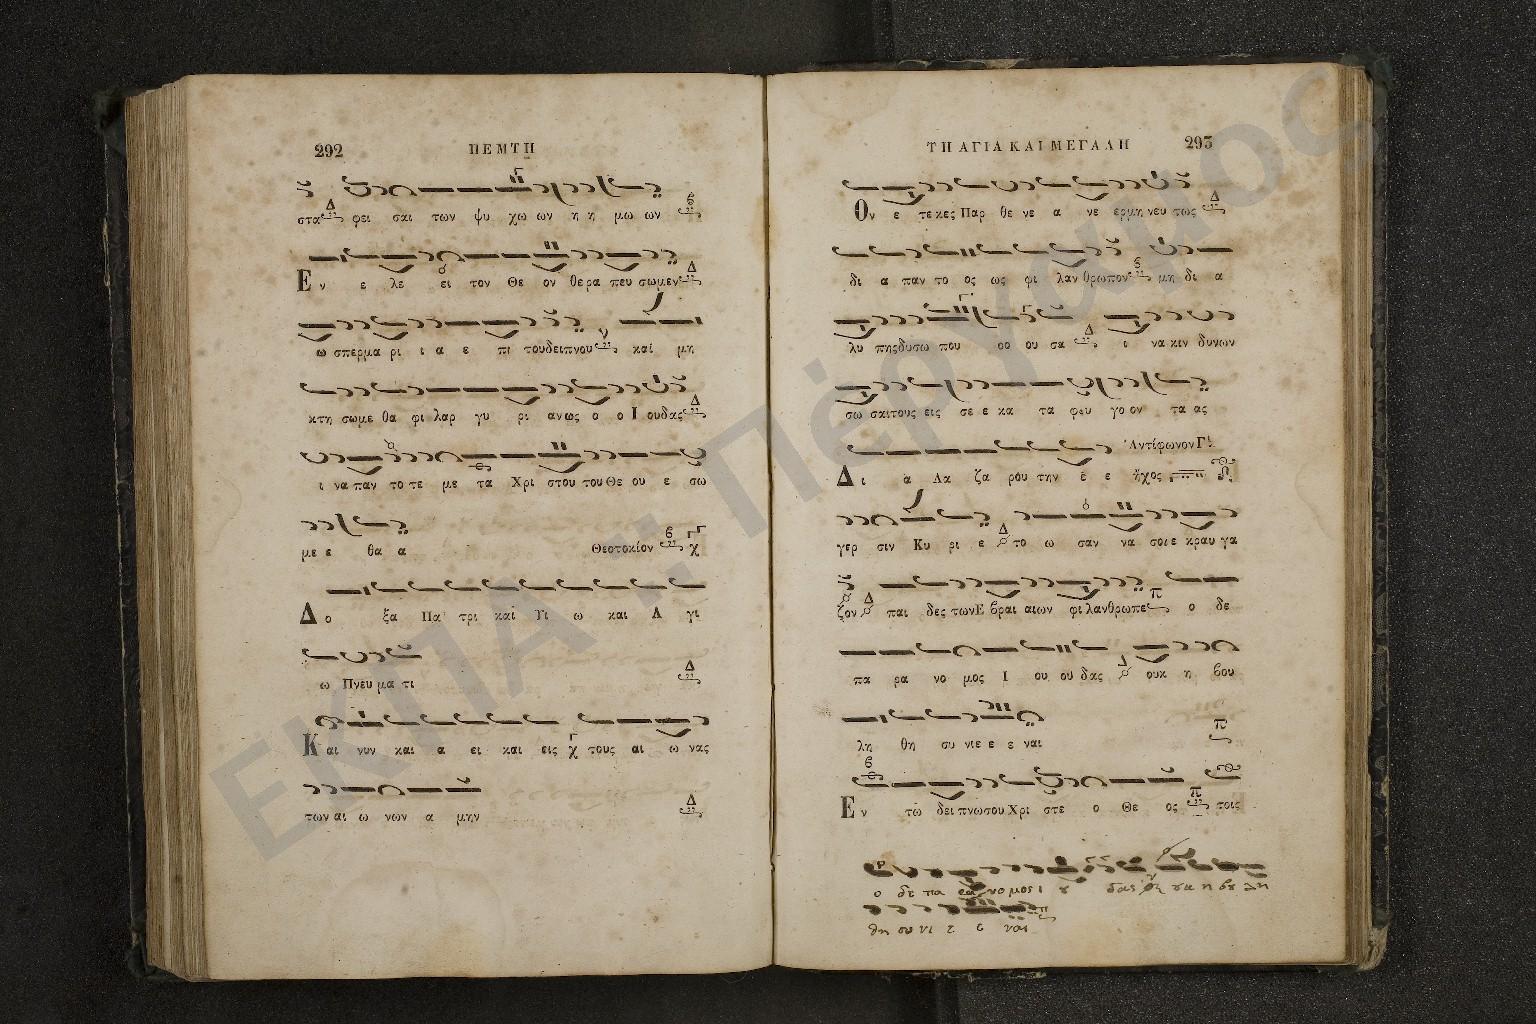 292 ΠΕΜΤΗ
στα φει σαι των ψυ χω ων η η μω ων
Εν ε λε ει τον Θε ον θερα πευ σωμεν
ω σπερμα ρι ι α ε πι τουδειπνου και μη
κτη σωμε θα φι λαρ γυ ρι ανως ο ο Ι ουδας
ι ναπαν τοτε με τα Χρι στου του Θε ου ε σω
με ε θα α Θεοτοκίον
Δο ξα Πα τρι και Υι ω και Α γι
ω Πνευ μα τι
Και νυν και α ει και εις τους αι ω νας
των αι ω νων α μην
ΤΗ ΑΓΙΑ ΚΑΙ ΜΕΓΑΛΗ 293
Ον ε τεκες Παρ θε νε α νε ερμη νευ τως
δι α παν το ος ως φι λαν θρωπον μη δι α
λυ πηςδυσω που οο ου σα ι να κιν δυνων
σω σαιτους εις σε ε κα τα φευ γο ον τα ας
Ἀντίφωνον Γ'.
Δι α Λα ζα ρου την ε ε ἦχος
γερ σιν Κυ ρι ε το ω σαν να σοι ε κραυ γα
ζον παι δες των Ε βραι αιων φι λανθρωπε ο δε
πα ρα νο μος Ι ου ου δας ουκ η βου
λη θη συ νιε ε ε ναι
Εν τω δει πνωσου Χρι στε ο Θε ος τοις
ο δε πα ρα νο μος ι ου δας ουκ η βου λη
θη συ νι ε ε ναι
ΕΚΠΑ : Πέργαμος